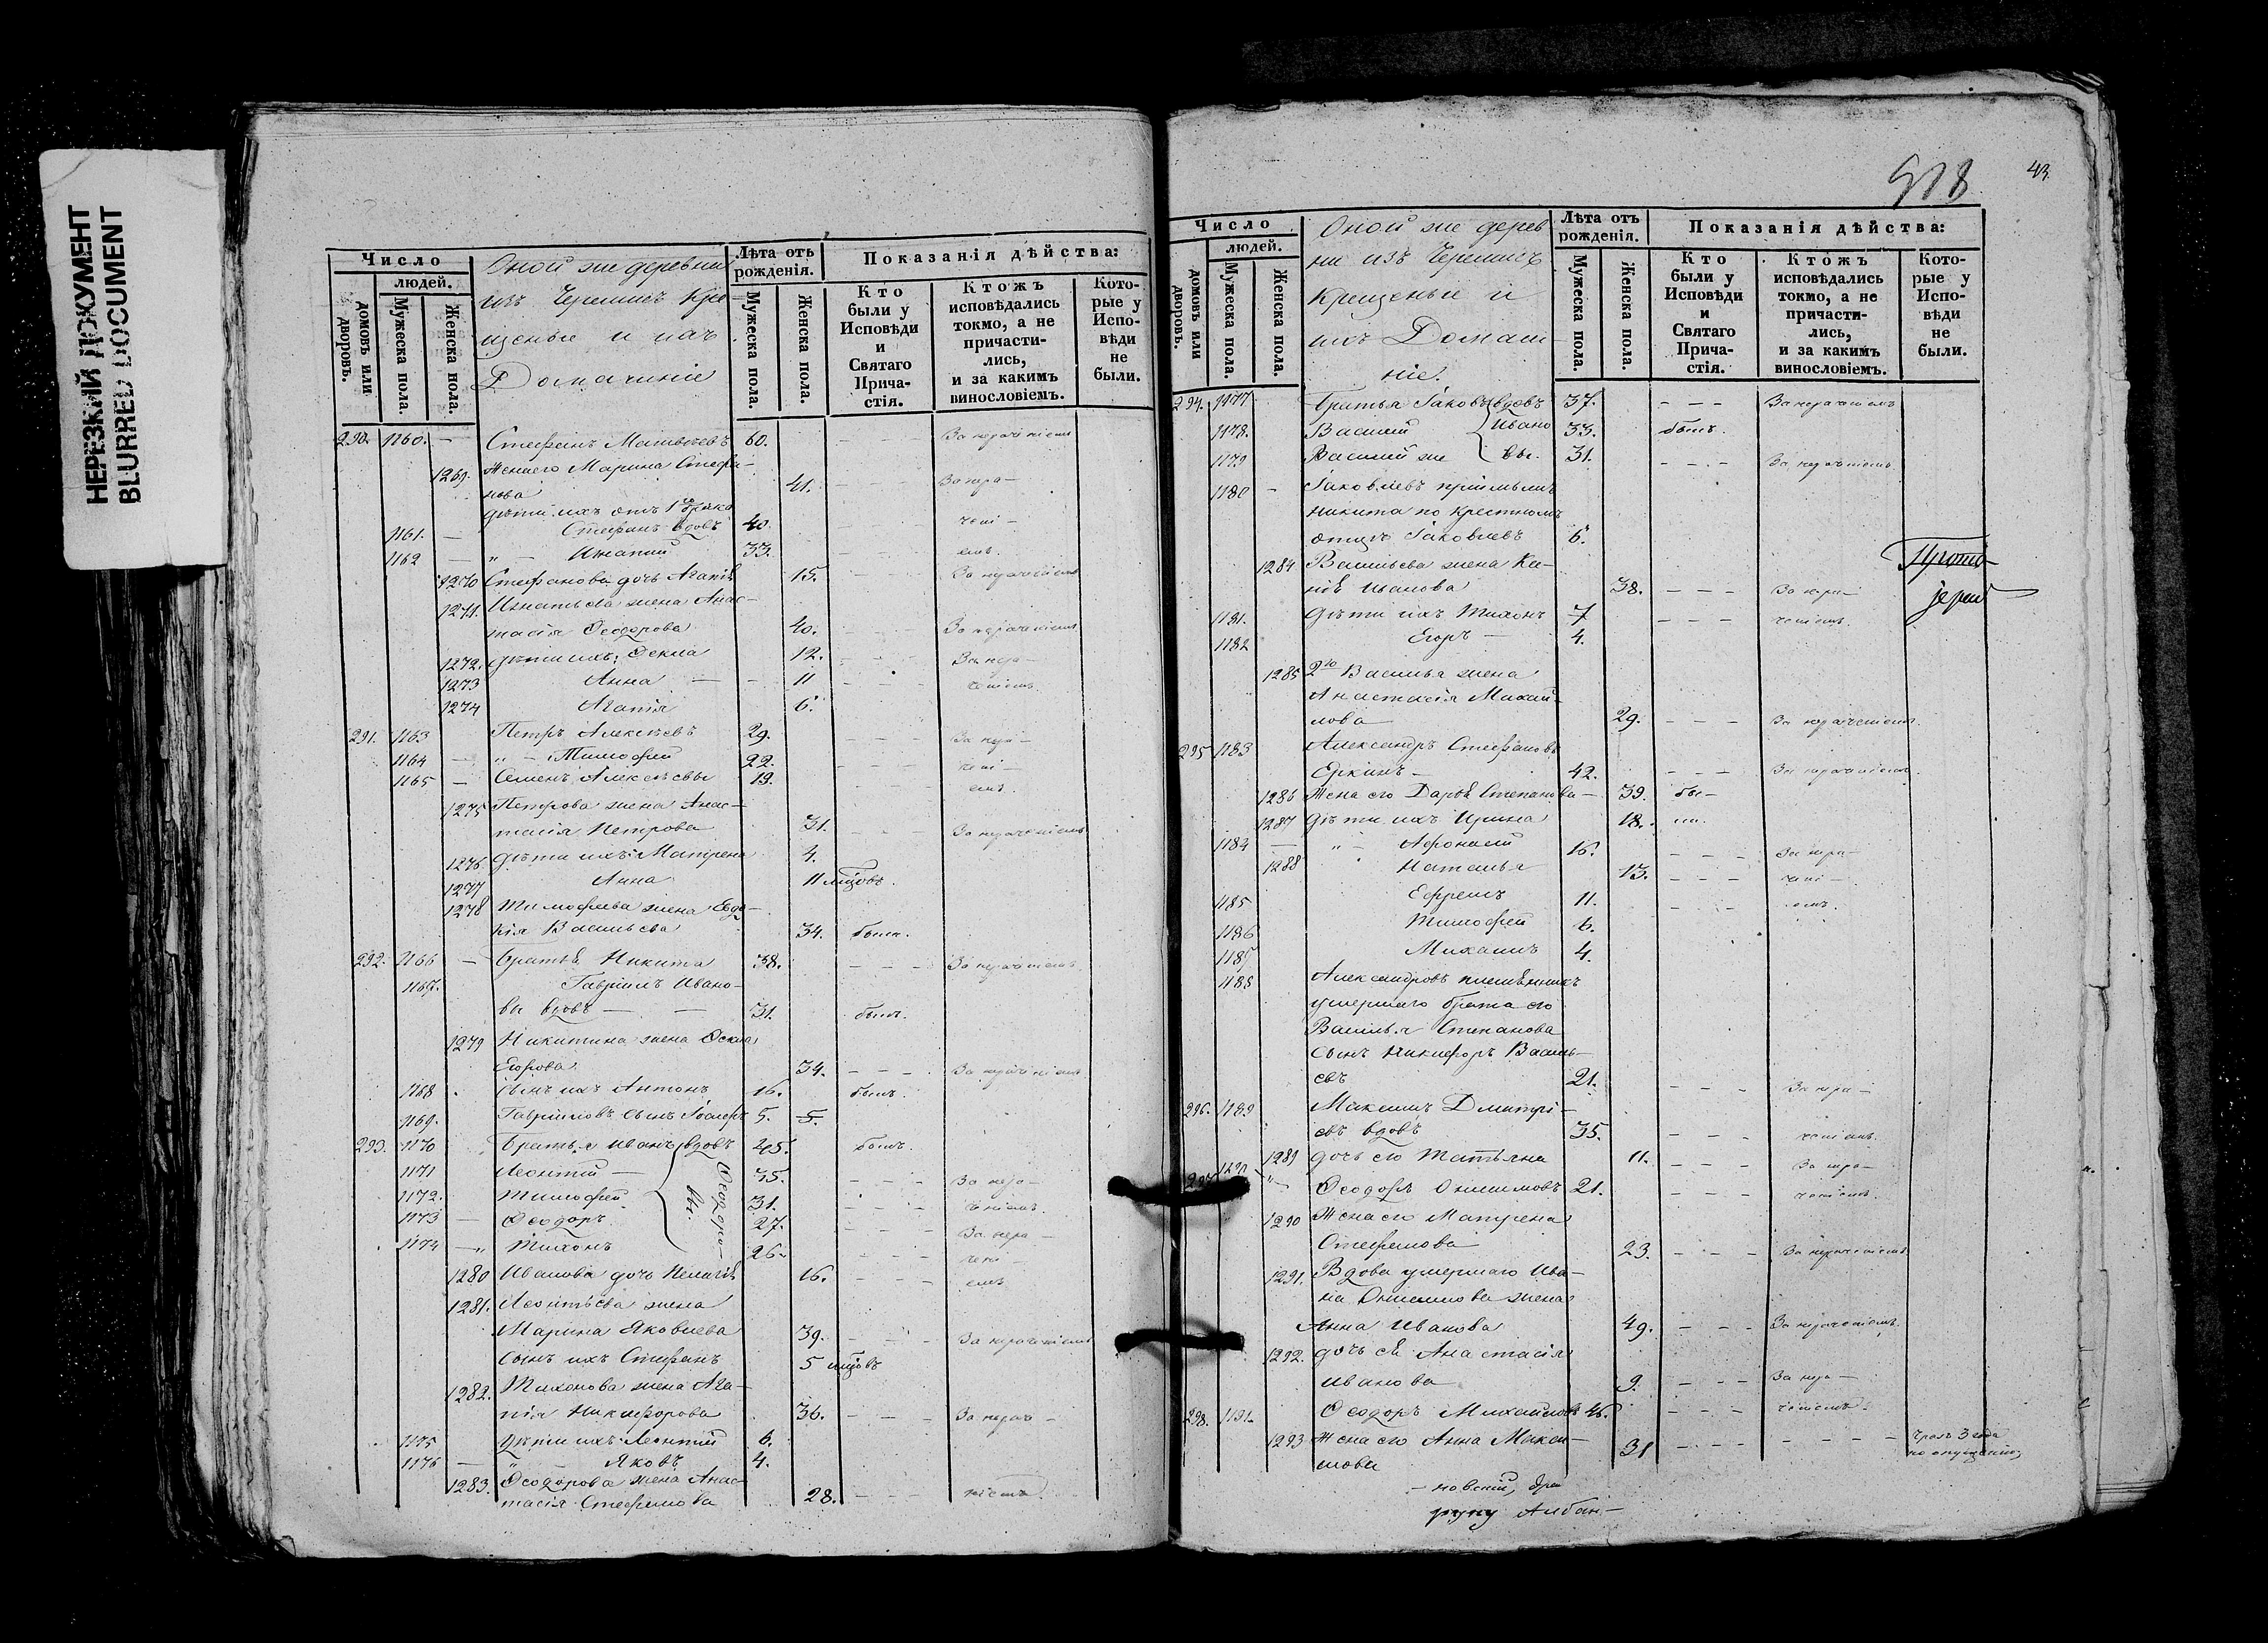 НЕРЕЗКИЙ ДОКУМЕНТ
BLURRED DOCUMENT
Число
людей.
домовъ или дворовъ.
Мужеска пола.
Женска пола.
Оной же деревни
изъ Черемисъ кре-
щеные и ихъ
Домашніе
Лѣта отъ рожденія.
Мужеска пола.
Женска пола.
Показанія дѣйства:
Кто были у Исповѣди и Святаго Прича-стія.
Ктожъ исповѣдались токмо, а не причасти-лись, и за какимъ винословіемъ.
Кото-рые у Испо-вѣди не были.
290. 1160. — Стефанъ Матвѣевъ 60. — — — За нераченіемъ
1269. Жена его Марина Стефа-
нова 41. — — — За нера-
дѣти ихъ отъ 1 брака
1161. — Стефанъ вдовъ 40. — — — чені-
1162 — „ — Игнатий 33. — — — емъ.
1270 Стефанова дочь Агапія 15. — — — За нераченіемъ
1271. Игнатьева жена Анас-
тасія Ѳеодорова 40. — — — За нераченіемъ
1272. дѣти ихъ: Ѳекла 12. — — — За нера-
1273 Анна — 11 — — — ченіемъ.
1274 Агапія 6.
291. 1163 Петръ Алексѣевъ 29. — — — За нера-
1164 — „ — Тимофей 22. — — — чені-
1165 — Семенъ Алексѣевы 19. — — — емъ.
1275 Петрова жена Анас-
тасія Петрова 31. — — — За нераченіемъ
1276 дѣти ихъ: Матрена 4.
1277 Анна 11 мцовъ.
1278 Тимофеева жена Евдо-
кія Васильева 34. была.
292. 1166 — Братья Никита 38. — — — За нераченіемъ
1167. Гавріилъ Ивано-
вы вдовъ — — 31. былъ.
1279 Никитина жена Ѳекла
Егорова 34. — — — За нераченіемъ
1168 Сынъ ихъ Антонъ 16. былъ.
1169. Гавріиловъ сынъ Іосифъ 5. 5.
293. 1170 Братья Иванъ вдовъ 45. былъ.
1171 Леонтий — 35. — — — За нера-
1172. Тимофей 31. — — — ченіемъ.
1173 — Ѳеодоръ 27. — — — За нера-
1174 — „ Тихонъ 26. — — — чені-
Ѳеодоро-
вы.
1280 Иванова дочь Пелагія 16. — — — емъ
1281. Леонтьева жена
Марина Яковлева 39. — — — За нераченіемъ
Сынъ ихъ Стефанъ 5 мцовъ
1282. Тихонова жена Ага-
пія Никифорова 36. — — — За нерач-
1175 Дѣти ихъ: Леонтий 6.
1176 — „ — Яковъ 4.
1283. Ѳеодорова жена Анас-
тасія Стефанова 28. — — — ніемъ.
43.
Число
людей.
домовъ или дворовъ.
Мужеска пола.
Женска пола.
Оной же дерев
ни изъ Черемисъ
крещеные и
ихъ Домаш-
ніе.
Лѣта отъ рожденія.
Мужеска пола.
Женска пола.
Показанія дѣйства:
Кто были у Исповѣди и Святаго Прича-стія.
Ктожъ исповѣдались токмо, а не причасти-лись, и за какимъ винословіемъ.
Кото-рые у Испо-вѣди не были.
294. 1177 Братья Іаковъ вдовъ 37. — — — За нераченіемъ
1178. Василий Ивано 33. былъ.
1179 Василий же вы. 31. — — — За нераченіемъ
1180 — Іаковлевъ приимышъ
Никита по крестному
отцу Іаковлевъ 6.
Прото-
іерей
1284 Васильева жена Ка-
Иванова 38. — — — За нера-
1181. Дѣти ихъ Тихонъ 7 — — — ченіемъ.
1182 Егоръ — 4.
1285 2го Василья жена
Анастасія Михаи-
лова 29. — — — За нераченіемъ.
295 1183 Александръ Стефановъ
Еркинъ — 42. — — — За нераченіемъ.
1286 Жена его Дарья Степанова — 39. бы-
1287 Дѣти ихъ Ирина 18. ли.
1184 — „ — Афонасий 16. — — — За нера-
1288 Наталья 13. — — — чені-
1185 Ефремъ 11. — — — емъ.
1186 Тимофей 6.
1187 Михаилъ 4.
1188 Александровъ племянникъ
умершаго брата его
Василья Степанова
сынъ Никифоръ Василь-
евъ 21. — — — За нера-
296. 1189 Максимъ Дмитрі-
евъ вдовъ 35. — — — ченіемъ.
1289 дочь его Татьяна 11. — — — За нера-
297 1190 „ Ѳеодоръ Онисимовъ 21. — — — ченіемъ.
1290 Жена его Матрена
Стефанова 23. — — — За нераченіемъ
1291. Вдова умершаго Ива-
на Онисимова жена
Анна Иванова 49. — — — За нераченіемъ.
1292. дочь ея Анастасія
Иванова 9. — — — За нера-
298. 1191. Ѳеодоръ Михайловъ 46. — — — ченіемъ
1293 Жена его Анна Макси-
мова 31 — — — — — — — чрезъ 3 года
по опущенію
— новскій,
руку Албан-